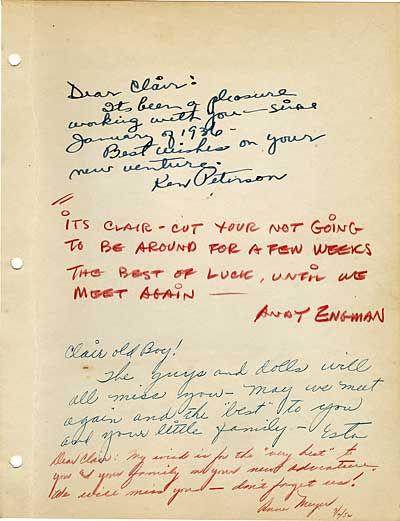 Dear Clair:
Its been a pleasure
working with you — since
January of 1936 -
Best wishes on your
new venture.
Ken Peterson
ITS CLAIR - CUT YOUR NOT GOING
TO BE AROUND FOR A FEW WEEKS
THE BEST OF LUCK, UNTIL WE
MEET AGAIN —
ANDY ENGMAN
Clair old Boy!
The guys and dolls will
all miss you - May we meet
again and the "best" to you
and your little family - Esta
Dear Clair: My wish is for the "very best" to
you & your family in your new adventure.
We will miss you — don't forget us!
Anne Meyer